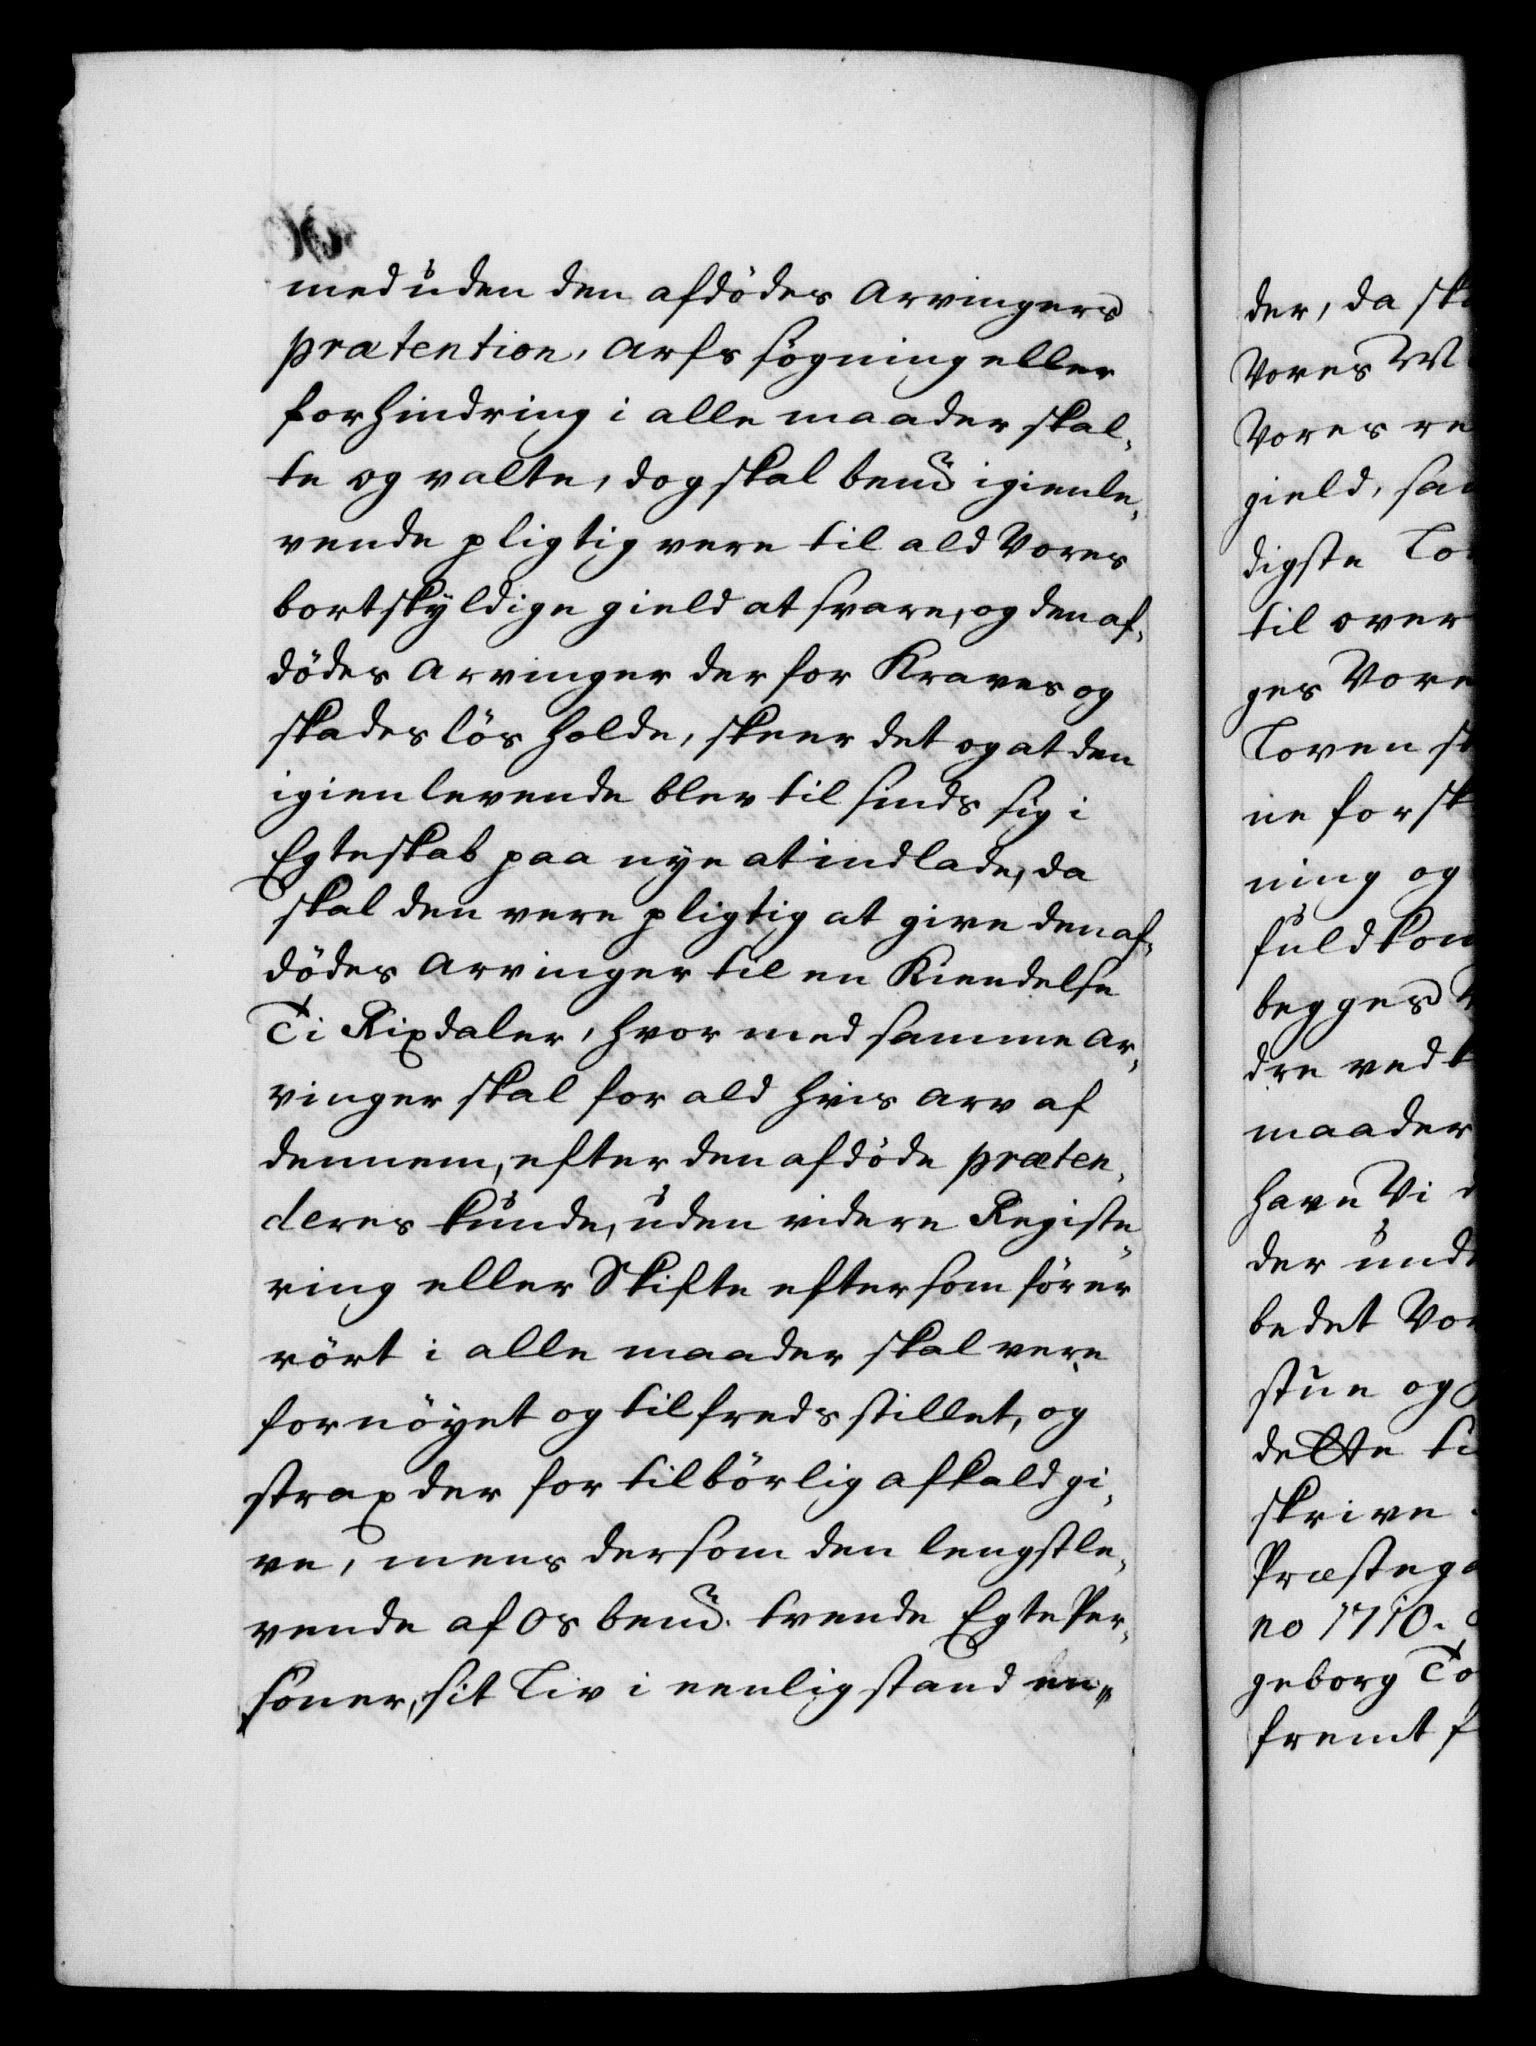 med uden den afdödes Arvingers
prætention, Arfs sögning eller
forhindring i alle maader skal,
te og valte, dog skal bem̃d igienle,
vende pligtig vere til ald Vores
bortskyldige gield at svare, og den af,
dödes Arvinger der for Kraves og
skadeslös holde, skeer det og at den
igienlevende blev til sinds sig i
Egteskab paa nye at indlade, da
skal den vere pligtig at give den af,
dödes Arvinger til en Kiendelse
Ti Rixdaler, hvor med samme Ar,
vinger skal for ald hvis Arv af
dennem, efter den afdöde præten,
deres kunde, uden videre Registe,
ring eller Skifte eftersomför er
rört i alle maader skal vere
fornöyet og tilfredsstillet, og
strax der for tilbörlig afkald gi,
ve, mens dersom den lengstle,
vende af os bem̃d. tvende Egte Per,
soner, sit Liv i eenlig stand en,,
der, da sk
Vores
Vores re
gield, sa
digste Lo
til over
ges Vore
Loven s
ne for sk
ning og
fuldkom
begges
dre ved
maader
have Vi
der und
bedet Vo
stue og
dette ti
skrive
Præstega
no 1710.
geborg To
fremt f